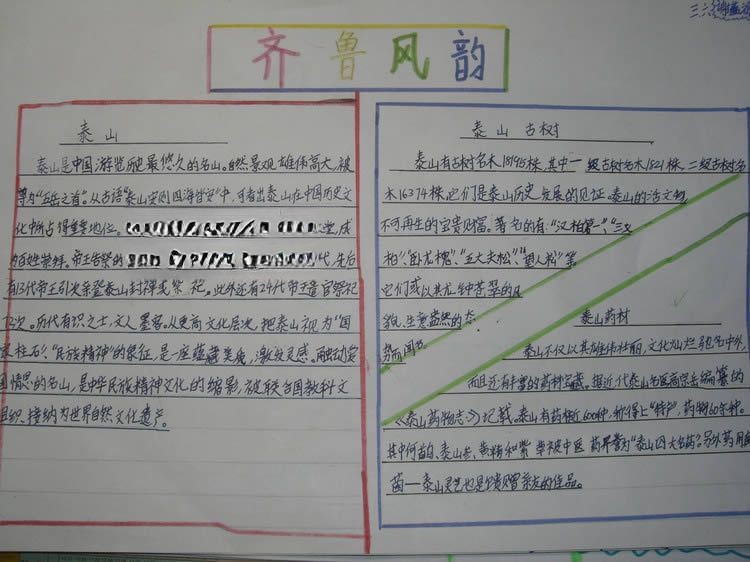 齐鲁风韵
泰山
泰山是中国游览历史最悠久的名山。自然景观雄伟高大，被
尊为“五岳之首”。从古语“泰山安则四海皆安”中，可看出泰山在中国历史文
化中所占得重要地位。
堂，成
为百姓崇拜。帝王告祭的
代，先后
有13代帝王引次亲登泰山封禅或祭祀。此外还有24代帝王遣官祭祀
72次。历代有识之士，文人墨客。从更高文化层次，把泰山视为“国
泰柱石”、“民族精神”的象征，是一座蕴藏美质，激发灵感。融动爱
国情思的名山，是中华民族精神文化的缩影，被联合国教科文
组织、接纳为世界自然文化遗产。
泰山古树
泰山有古树名木18195株，其中一级古树名木1821株，二级古树名
木16374株，它们是泰山历史发展的见证、泰山的活文物，
不可再生的宝贵财富。著名的有：“汉柏第一”、“三义
柏”“卧龙槐”、“五大夫松”、“望人松”等。
它们或以其龙钟苍翠的风
貌，生意盎然的态
势而闻
泰山药材
泰山不仅以其雄伟壮丽，文化灿烂驰名中外，
而且还有丰富的药材宝藏。据近代泰山名医高宗岳编纂的
《泰山药物志》记载。泰山有药物近600种，称得上“特产”，药物60余种。
其中何首乌、泰山参、黄精和紫草被中医药界誉为“泰山四大名药”。另外药用真
菌—泰山灵芝也是馈赠亲友的佳品。